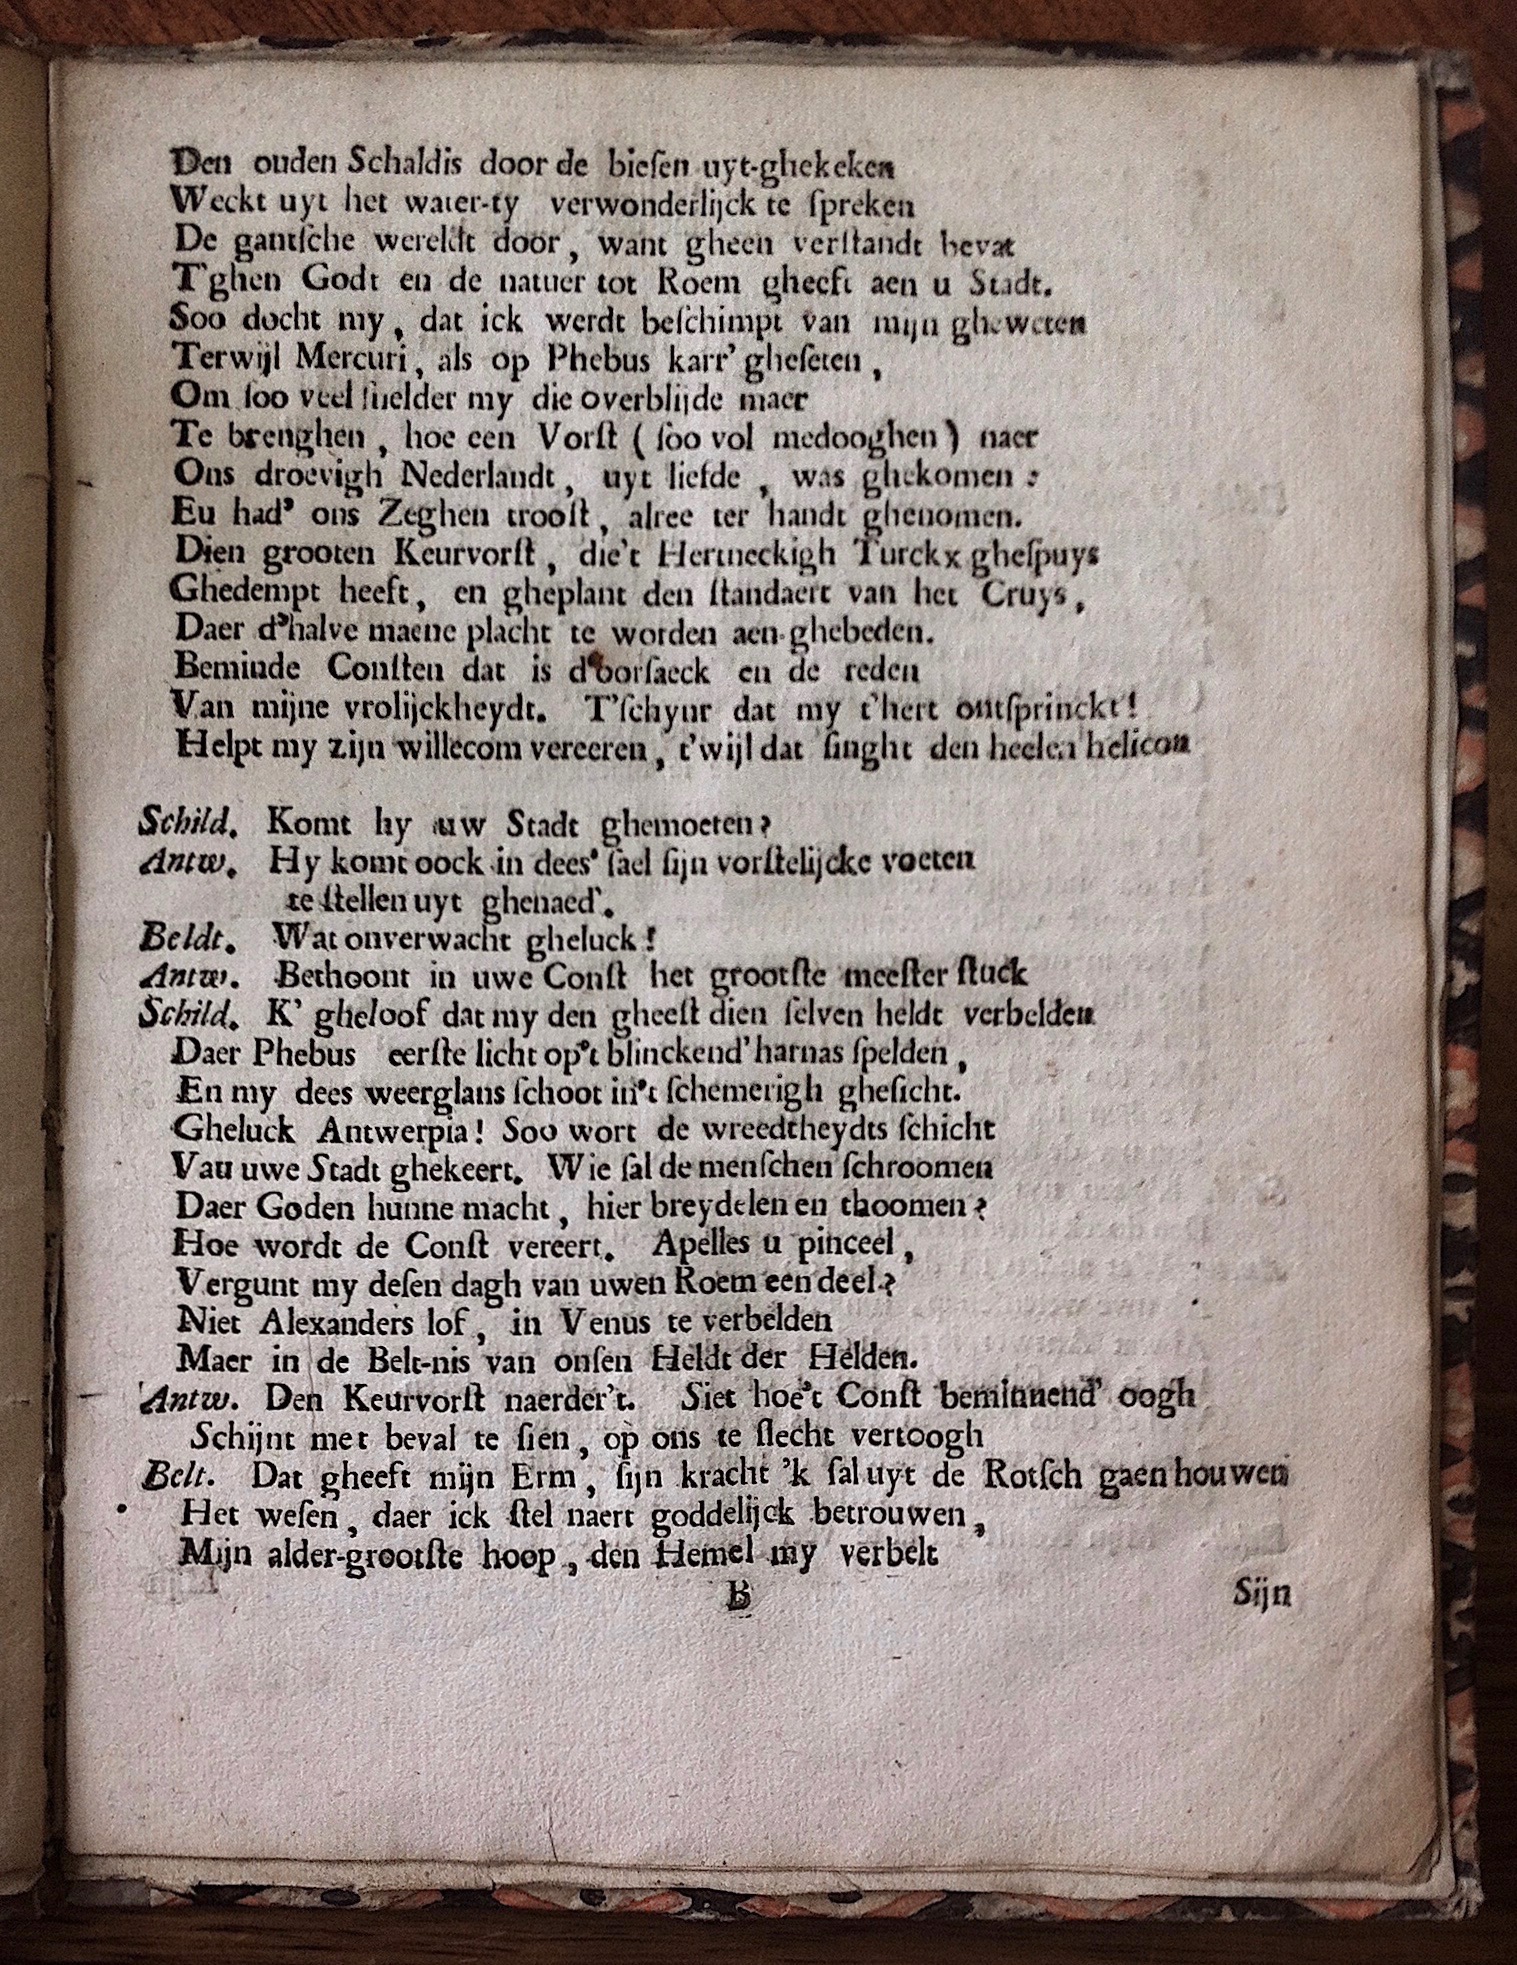 Den ouden Schaldis door de bieſen uyt-ghekeken
Weckt uyt het water-ty verwonderlijck te ſpreken
De gantſche wereldt door, want gheen verſtandt bevat
T'ghen Godt en de natuer tot Roem gheeft aen u Stadt.
Soo docht my, dat ick werdt beſchimpt van mijn gheweten
Terwijl Mercuri, als op Phebus karr' gheſeten,
Om ſoo veel ſnelder my die overblijde maer
Te brenghen, hoe een Vorſt (ſoo vol medooghen) naer
Ons droevigh Nederlandt, uyt liefde, was ghekomen:
En had' ons Zeghen trooſt, alree ter handt ghenomen.
Dien grooten Keurvorſt, die't Hertneckigh Turckx gheſpuys
Ghedempt heeft, en gheplant den ſtandaert van het Cruys,
Daer d'halve maene placht te worden aen-ghebeden.
Beminde Conſten dat is d'oorſaeck en de reden
Van mijne vrolijckheydt. T'ſchynt dat my t'hert ontſprinckt!
Helpt my zijn willecom vereeren, t'wijl dat ſinght den heelen helicon
Schild. Komt hy uw Stadt ghemoeten?
Antw. Hy komt oock in dees' ſael ſijn vorſtelijcke voeten
te ſtellen uyt ghenaed'.
Beldt. Wat onverwacht gheluck!
Antw. Bethoont in uwe Conſt het grootſte meeſter ſtuck
Schild. K' gheloof dat my den gheeſt dien ſelven heldt verbelden
Daer Phebus eerſte licht op't blinckend' harnas ſpelden,
En my dees weerglans ſchoot in't ſchemerigh gheſicht.
Gheluck Antwerpia! Soo wort de wreedtheydts ſchicht
Van uwe Stadt ghekeert. Wie ſal de menſchen ſchroomen
Daer Goden hunne macht, hier breydelen en thoomen?
Hoe wordt de Conſt vereert. Apelles u pinceel,
Vergunt my deſen dagh van uwen Roem een deel?
Niet Alexanders lof, in Venus te verbelden
Maer in de Belt-nis van onſen Heldt der Helden.
Antw. Den Keurvorſt naerder't. Siet hoe't Conſt beminnend' oogh
Schijnt met beval te ſien, op ons te ſlecht vertoogh
Belt. Dat gheeft mijn Erm, ſijn kracht 'k ſal uyt de Rotſch gaen houwen
Het weſen, daer ick ſtel naert goddelijck betrouwen,
Mijn alder-grootſte hoop, den Hemel my verbelt
B Sijn